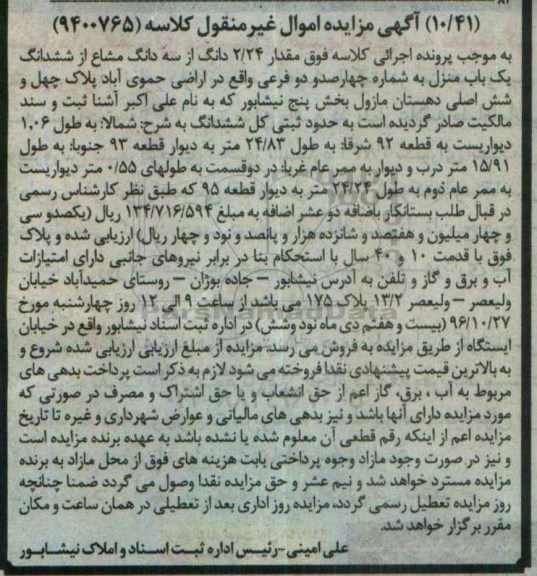 (۱۰/۴۱) آگهی مزایده اموال غیر منقول کلاسه (۹۴۰۰۷۶۵)
به موجب پرونده اجرائی کلاسه فوق مقدار ۲/۲۴ دانگ از سه دانگ مشاع از ششدانگ
یک باب منزل به شماره چهارصدو دو فرعی واقع در اراضی حموی آباد پلاک چهل و
شش اصلی دهستان مازول بخش پنج نیشابور که به نام علی اکبر آشنا ثبت و سند
مالکیت صادر گردیده است به حدود ثبتی کل ششدانگ به شرح: شمالا: به طول ۱.۰۶
دیواریست به قطعه ۹۲ شرقا: به طول ۲۴/۸۳ متر به دیوار قطعه ۹۳ جنوبا: به طول
۱۵/۹۱ متر درب و دیوار به ممر عام غربا: در دوقسمت به طولهای ۰/۵۵ متر دیواریست
به ممر عام دوم به طول ۲۴/۲۴ متر به دیوار قطعه ۹۵ که طبق نظر کارشناس رسمی
در قبال طلب بستانکار باضافه دو عشر اضافه به مبلغ ۱۳۴/۷۱۶/۵۹۴ ریال (یکصدو سی
و چهار میلیون و هفتصد و شانزده هزار و پانصد و نود و چهار ریال) ارزیابی شده و پلاک
فوق با قدمت ۱۰ و ۴۰ سال با استحکام بنا در برابر نیروهای جانبی دارای امتیازات
آب و برق و گاز و تلفن به آدرس نیشابور – جاده بوژان – روستای حمیدآباد خیابان
ولیعصر – ولیعصر ۱۳/۲ پلاک ۱۷۵ می باشد از ساعت ۹ الی ۱۲ روز چهارشنبه مورخ
۹۶/۱۰/۲۷ (بیست و هفتم دی ماه نود وشش) در اداره ثبت اسناد نیشابور واقع در خیابان
ایستگاه از طریق مزایده به فروش می رسد. مزایده از مبلغ ارزیابی ارزیابی شده شروع و
به بالاترین قیمت پیشنهادی نقدا فروخته می شود لازم به ذکر است پرداخت بدهی های
مربوط به آب ، برق، گاز اعم از حق انشعاب و یا حق اشتراک و مصرف در صورتی که
مورد مزایده دارای آنها باشد و نیز بدهی های مالیاتی و عوارض شهرداری و غیره تا تاریخ
مزایده اعم از اینکه رقم قطعی آن معلوم شده یا نشده باشد به عهده برنده مزایده است
و نیز در صورت وجود مازاد وجوه پرداختی بابت هزینه های فوق از محل مازاد به برنده
مزایده مسترد خواهد شد و نیم عشر و حق مزایده نقدا وصول می گردد ضمنا چنانچه
روز مزایده تعطیل رسمی گردد، مزایده روز اداری بعد از تعطیلی در همان ساعت و مکان
مقرر برگزار خواهد شد.
علی امینی–رئیس اداره ثبت اسناد و املاک نیشابور